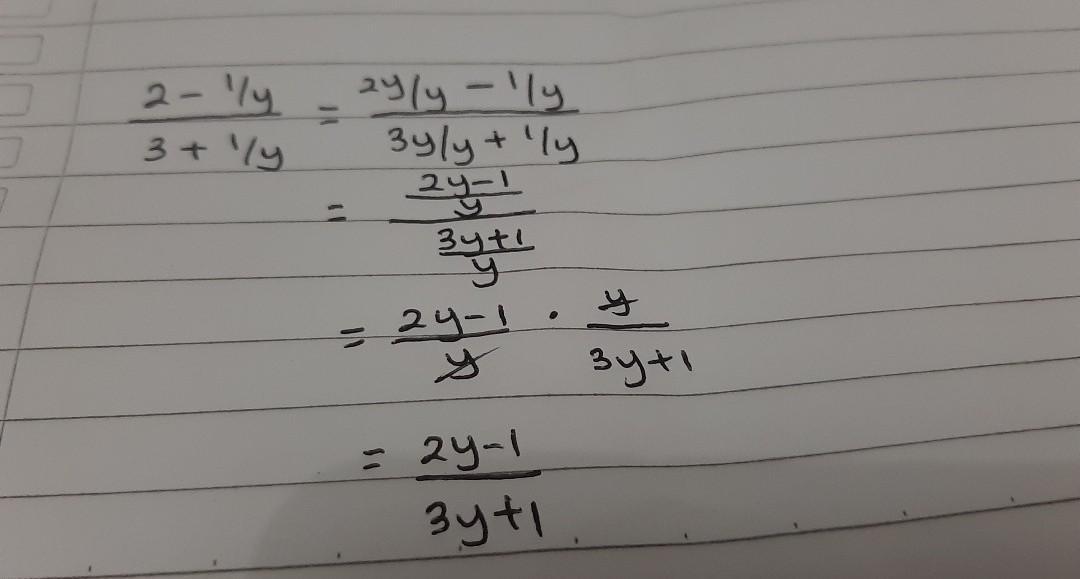 2 - 1/y / 3 + 1/y = 2y/y - 1/y / 3y/y + 1/y
= 2y-1 / y / 3y+1 / y
= 2y-1 / y . y / 3y+1
= 2y-1 / 3y+1